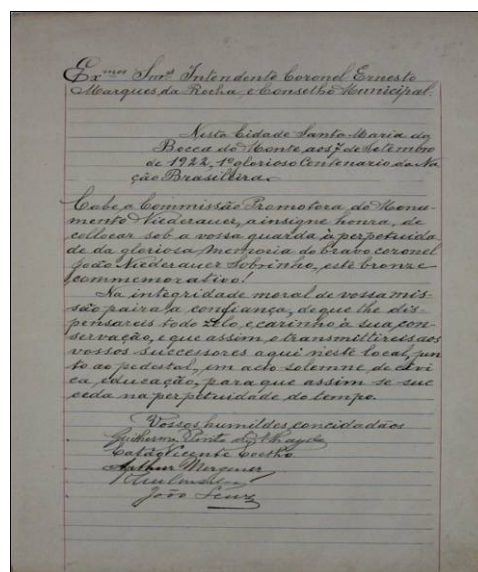 Exmos Snrs Intendente Coronel Ernesto
Marques da Rocha, e Conselho Municipal.
Nesta Cidade Santa Maria da
Bocca do Monte, aos 7 de Setembro
de 1922, 1º glorioso Centenario da Na-
ção Brasileira.
Cabe, a Commissão Promotora, do Monu-
mento Niederauer, a insigne honra, de
collocar sob a vossa guarda à perpetuida-
de da gloriosa memoria do bravo coronel
João Niederauer Sobrinho, este bronze
commemorativo!
Na integridade moral de vossa mis-
são paira, a confiança, de que lhe dis-
pensareis todo zelo, e carinho à sua con-
servação, e que assim, o transmittireis aos
vossos successores aqui neste local, jun
to ao pedestal, em acto solemne, de civi
ca, educação, para que assim se suc
ceda na perpetuidade do tempo.
Vossos humildes concidadãos
Guilherme
Catão Vicente Coelho
Arthur
João Lenz